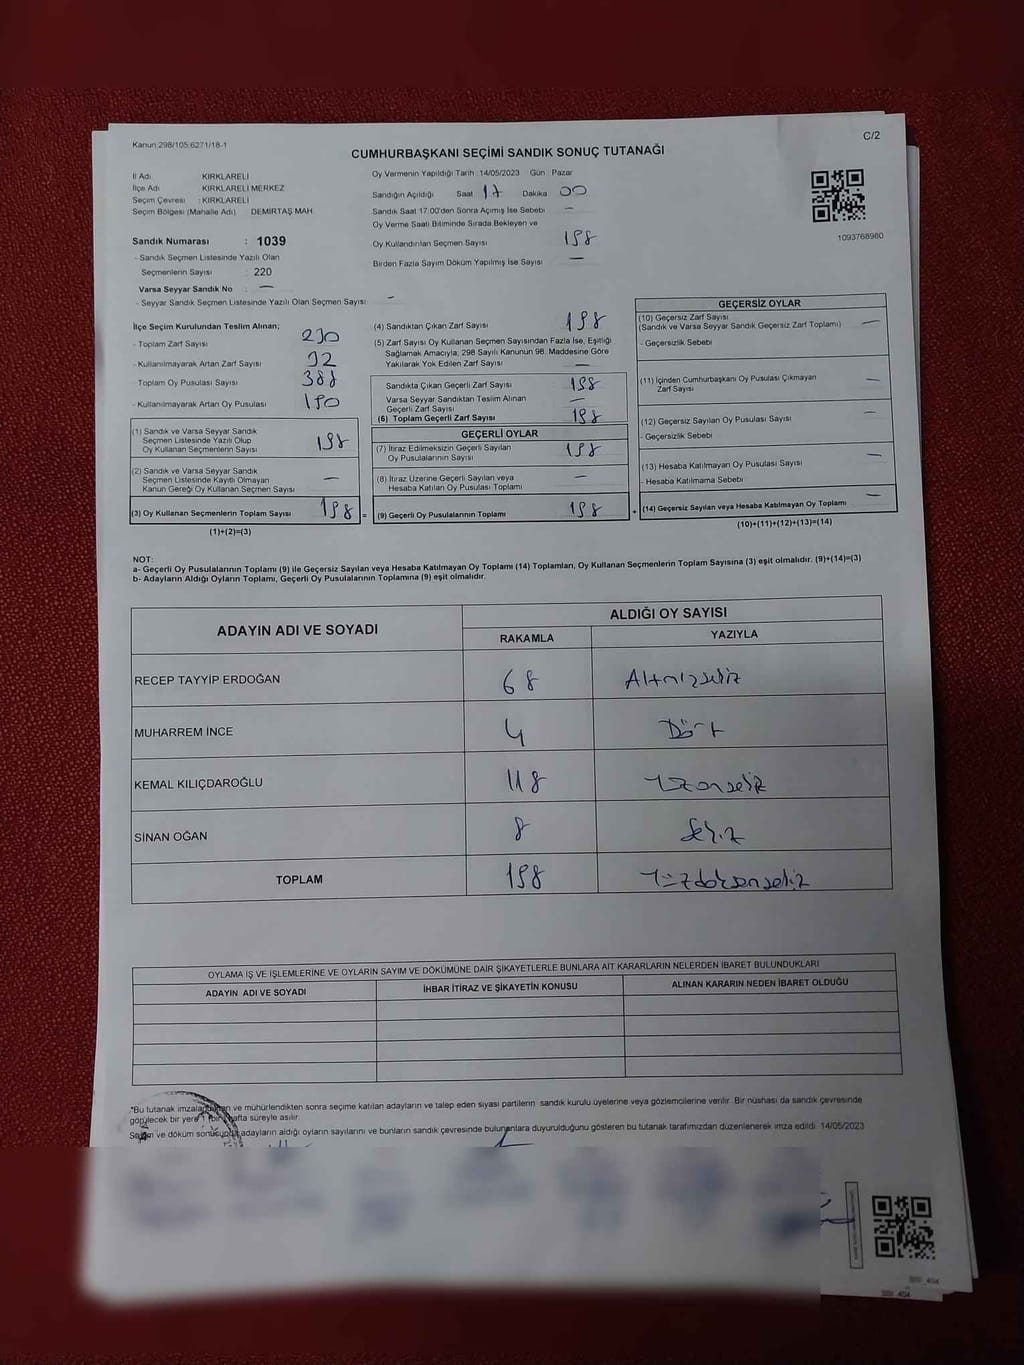 Kanun:298/105;6271/18-1
C/2
CUMHURBAŞKANI SEÇİMİ SANDIK SONUÇ TUTANAĞI
İl Adı KIRKLARELİ
İlçe Adı KIRKLARELİ MERKEZ
Seçim Çevresi : KIRKLARELİ
Seçim Bölgesi (Mahalle Adı) DEMİRTAŞ MAH.
Sandık Numarası : 1039
- Sandık Seçmen Listesinde Yazılı Olan
Seçmenlerin Sayısı : 220
Varsa Seyyar Sandık No : —
- Seyyar Sandık Seçmen Listesinde Yazılı Olan Seçmen Sayısı —
Oy Vermenin Yapıldığı Tarih 14/05/2023 Gün Pazar
Sandığın Açıldığı Saat 17 Dakika 00
Sandık Saat 17:00'den Sonra Açımış İse Sebebi —
Oy Verme Saati Bitiminde Sırada Bekleyen ve
Oy Kullandırılan Seçmen Sayısı 198
Birden Fazla Sayım Döküm Yapılmış İse Sayısı —
1093768960
İlçe Seçim Kurulundan Teslim Alınan;
- Toplam Zarf Sayısı 230
- Kullanılmayarak Artan Zarf Sayısı 32
- Toplam Oy Pusulası Sayısı 388
- Kullanılmayarak Artan Oy Pusulası 190
(1) Sandık ve Varsa Seyyar Sandık
Seçmen Listesinde Yazılı Olup
Oy Kullanan Seçmenlerin Sayısı 198
(2) Sandık ve Varsa Seyyar Sandık
Seçmen Listesinde Kayıtlı Olmayan
Kanun Gereği Oy Kullanan Seçmen Sayısı —
(3) Oy Kullanan Seçmenlerin Toplam Sayısı 198 =
(1)+(2)=(3)
(4) Sandıktan Çıkan Zarf Sayısı 198
(5) Zarf Sayısı Oy Kullanan Seçmen Sayısından Fazla İse, Eşitliği
Sağlamak Amacıyla; 298 Sayılı Kanunun 98. Maddesine Göre
Yakılarak Yok Edilen Zarf Sayısı —
Sandıkta Çıkan Geçerli Zarf Sayısı 198
Varsa Seyyar Sandıktan Teslim Alınan
Geçerli Zarf Sayısı —
(6) Toplam Geçerli Zarf Sayısı 198
GEÇERLİ OYLAR
(7) İtiraz Edilmeksizin Geçerli Sayılan
Oy Pusulalarının Sayısı 198
(8) İtiraz Üzerine Geçerli Sayılan veya
Hesaba Katılan Oy Pusulası Toplamı —
(9) Geçerli Oy Pusulalarının Toplamı 198 +
GEÇERSİZ OYLAR
(10) Geçersiz Zarf Sayısı
(Sandık ve Varsa Seyyar Sandık Geçersiz Zarf Toplamı) —
- Geçersizlik Sebebi
(11) İçinden Cumhurbaşkanı Oy Pusulası Çıkmayan
Zarf Sayısı —
(12) Geçersiz Sayılan Oy Pusulası Sayısı —
- Geçersizlik Sebebi
(13) Hesaba Katılmayan Oy Pusulası Sayısı —
- Hesaba Katılmama Sebebi
(14) Geçersiz Sayılan veya Hesaba Katılmayan Oy Toplamı —
(10)+(11)+(12)+(13)=(14)
NOT:
a- Geçerli Oy Pusulalarının Toplamı (9) ile Geçersiz Sayılan veya Hesaba Katılmayan Oy Toplamı (14) Toplamları, Oy Kullanan Seçmenlerin Toplam Sayısına (3) eşit olmalıdır. (9)+(14)=(3)
b- Adayların Aldığı Oyların Toplamı, Geçerli Oy Pusulalarının Toplamına (9) eşit olmalıdır.
ADAYIN ADI VE SOYADI ALDIĞI OY SAYISI
RAKAMLA YAZIYLA
RECEP TAYYİP ERDOĞAN 68 Altmışsekiz
MUHARREM İNCE 4 Dört
KEMAL KILIÇDAROĞLU 118 Yüzonsekiz
SİNAN OĞAN 8 Sekiz
TOPLAM 198 Yüzdoksansekiz
OYLAMA İŞ VE İŞLEMLERİNE VE OYLARIN SAYIM VE DÖKÜMÜNE DAİR ŞİKAYETLERLE BUNLARA AİT KARARLARIN NELERDEN İBARET BULUNDUKLARI
ADAYIN ADI VE SOYADI İHBAR İTİRAZ VE ŞİKAYETİN KONUSU ALINAN KARARIN NEDEN İBARET OLDUĞU
*Bu tutanak imzalandıktan ve mühürlendikten sonra seçime katılan adayların ve talep eden siyasi partilerin sandık kurulu üyelerine veya gözlemcilerine verilir. Bir nüshası da sandık çevresinde
görülecek bir yere 1 (bir) hafta süreyle asılır.
Sayım ve döküm sonucunda adayların aldığı oyların sayılarını ve bunların sandık çevresinde bulunanlara duyurulduğunu gösteren bu tutanak tarafımızdan düzenlenerek imza edildi. 14/05/2023
SSI_404
SSI_404